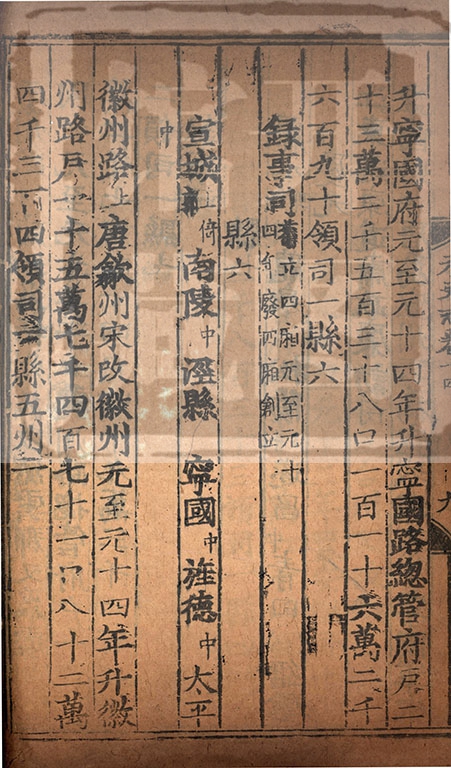 升寧國府元至元十四年升寧國路緫管府戶二
十三萬二千五百三十八口一百一十六萬二千
六百九十領司一縣六
録事司舊立四廂元至元十
四年廢四廂創立
縣六
宣城上倚南陵中涇縣寧國中旌德中太平
中
徽州路上唐歙州宋改徽州元至元十四年升徽
州路戶一十五萬七千四百七十一口八十二萬
四千三百四領司一縣五州一